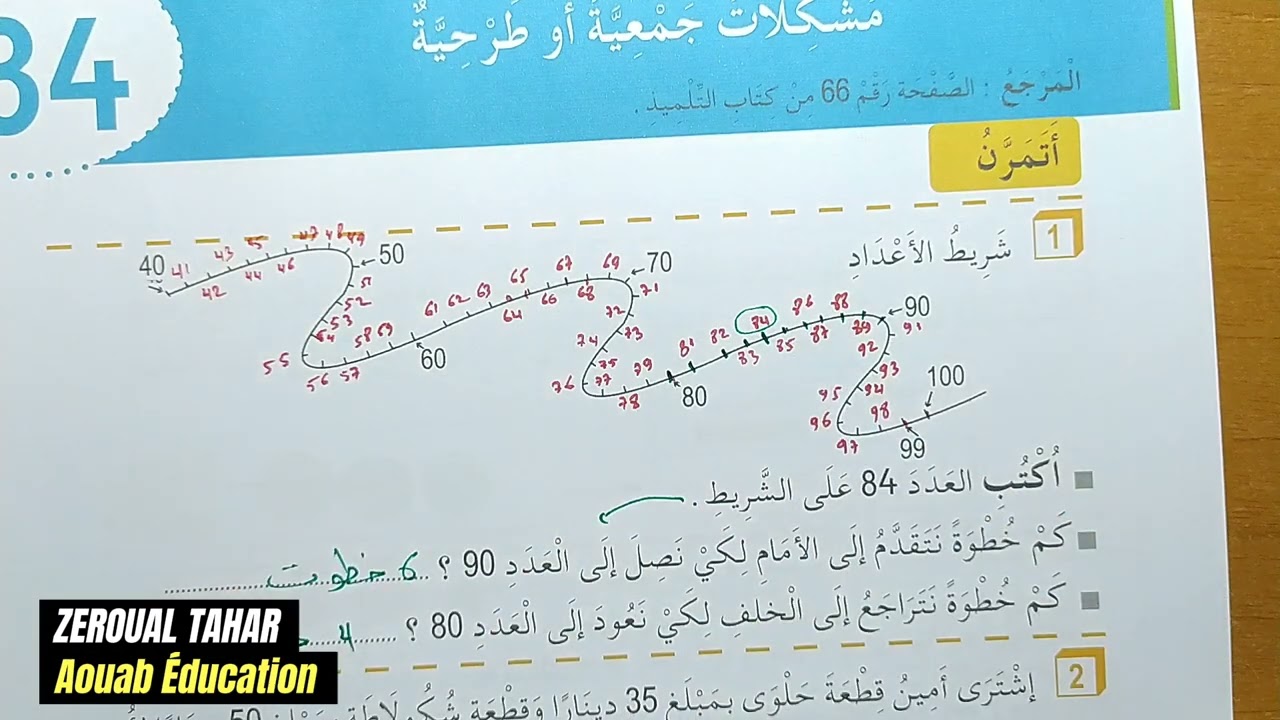 84
مُشْكِلَاتٌ جَمْعِيَّةٌ أَو طَرْحِيَّةٌ
الْمَرْجَعُ : الصَّفْحَة رَقْمُ 66 مِنْ كِتَابِ التِّلْمِيذِ .
أَتَمَرَّنُ
1 شَرِيطُ الأَعْدَادِ
40 41 42 43 44 45 46 47 48 49 50
51 52 53 54 55 56 57 58 59 60
61 62 63 64 65 66 67 68 69 70
71 72 73 74 75 76 77 78 79 80
81 82 83 84 85 86 87 88 89 90
91 92 93 94 95 96 97 98 99 100
أُكْتُبِ العَدَدَ 84 عَلَى الشَّرِيطِ .
كَمْ خُطْوَةً نَتَقَدَّمُ إِلَى الأَمَامِ لِكَيْ نَصِلَ إِلَى الْعَدَدِ 90 ؟ 6 خطوت
كَمْ خُطْوَةً نَتَرَاجَعُ إِلَى الْخلفِ لِكَيْ نَعُودَ إِلَى الْعَدَدِ 80 ؟ 4
2 إِشْتَرَى أَمِينُ قِطْعَةَ حَلْوَى بِمَبْلَغِ 35 دِينَارًا وَقِطْعَةَ شُكُولَاطَة
ZEROUAL TAHAR
Aouab Éducation